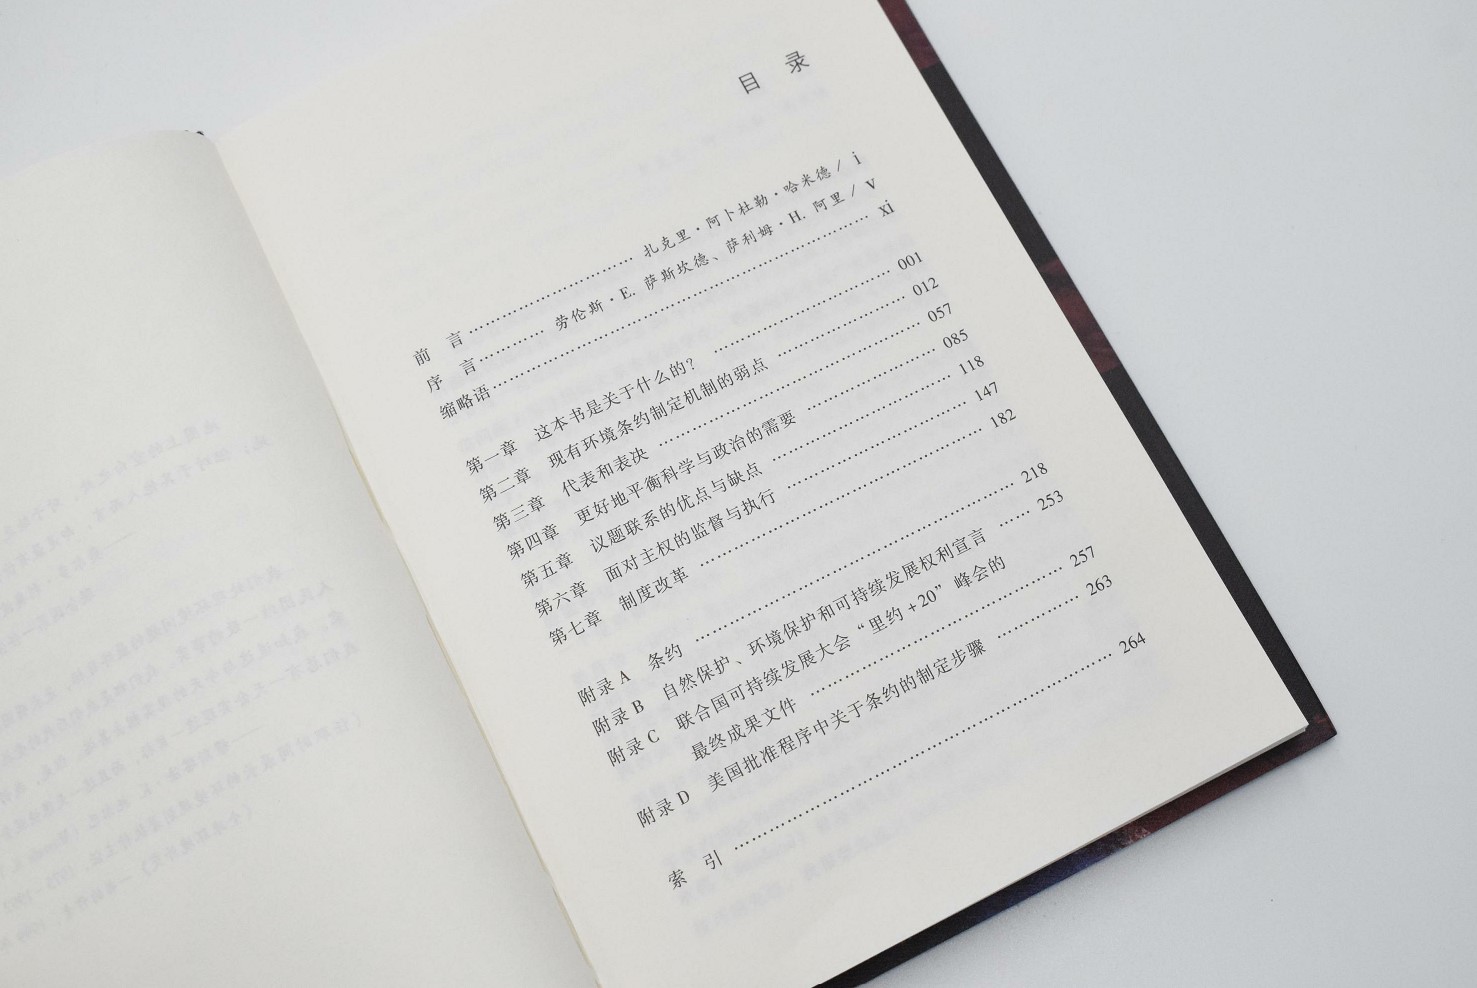 目 录
前 言 …… 扎克里·阿卜杜勒·哈米德 / i
序 言 …… 劳伦斯·E. 萨斯坎德、萨利姆·H. 阿里 / v
缩略语 …… xi
第一章 这本书是关于什么的？ …… 001
第二章 现有环境条约制定机制的弱点 …… 012
第三章 代表和表决 …… 057
第四章 更好地平衡科学与政治的需要 …… 085
第五章 议题联系的优点与缺点 …… 118
第六章 面对主权的监督与执行 …… 147
第七章 制度改革 …… 182
附录 A 条约 …… 218
附录 B 自然保护、环境保护和可持续发展权利宣言 …… 253
附录 C 联合国可持续发展大会“里约 +20”峰会的
最终成果文件 …… 257
附录 D 美国批准程序中关于条约的制定步骤 …… 263
索 引 …… 264